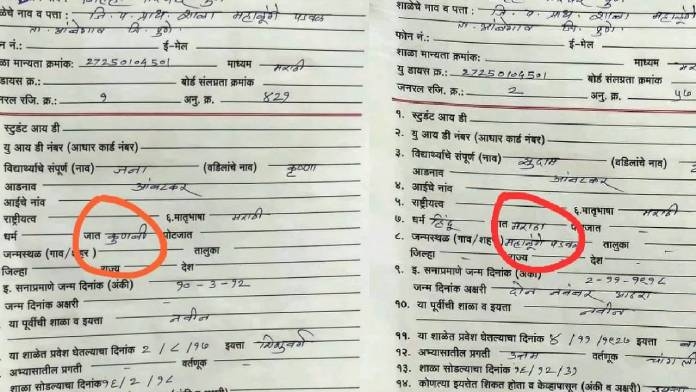 शाळेचे नाव व पत्ता : जि. प. प्राथ. शाळा महाळूंगे पडवळ
ता. आंबेगाव जि. पुणे
फोन नं.: ई-मेल
शाळा मान्यता क्रमांक: 27250104501 माध्यम मराठी
यु डायस क्र.: बोर्ड संलग्नता क्रमांक:
जनरल रजि. क्र.: १ अनु. क्र. ४२१
स्टुडंट आय डी
यु आय डी नंबर (आधार कार्ड नंबर)
विद्यार्थ्याचे संपूर्ण (नाव) जना (वडिलांचे नाव) कृष्णा
आडनाव आंवटकर
आईचे नांव
राष्ट्रीयत्व ६.मातृभाषा मराठी
धर्म जात कुणबी पोटजात
जन्मस्थळ (गाव/शहर) तालुका
जिल्हा राज्य देश
इ. सनाप्रमाणे जन्म दिनांक (अंकी) १०-३-१२
जन्म दिनांक अक्षरी
या पूर्वीची शाळा व इयत्ता नवीन
या शाळेत प्रवेश घेतल्याचा दिनांक 2/८/१७
अभ्यासातील प्रगती वर्तणूक
शाळा सोडल्याचा दिनांक १६/२/१८
शाळेचे नाव व पत्ता : जि. प. प्राथ. शाळा महाळूंगे पडवळ
ता. आंबेगाव जि. पुणे
फोन नं.: ई-मेल
शाळा मान्यता क्रमांक: 27250104501 माध्यम
यु डायस क्र.: बोर्ड संलग्नता क्रमांक:
जनरल रजि. क्र.: 2 अनु. क्र. ५७
१. स्टुडंट आय डी
२. यु आय डी नंबर (आधार कार्ड नंबर)
३. विद्यार्थ्याचे संपूर्ण (नाव) सुदाम (वडिलांचे नाव)
आडनाव आंवटकर
४. आईचे नांव
५. राष्ट्रीयत्व ६.मातृभाषा मराठी
७. धर्म हिंदू जात मराठा पोटजात
८. जन्मस्थळ (गाव/शहर) महाळूंगे पडवळ तालुका
जिल्हा राज्य देश
९. इ. सनाप्रमाणे जन्म दिनांक (अंकी) 2-११-१९१८
जन्म दिनांक अक्षरी दोन नवंबर अठरा
१०. या पूर्वीची शाळा व इयत्ता नवीन
११. या शाळेत प्रवेश घेतल्याचा दिनांक ४/११/१९२७
१२. अभ्यासातील प्रगती उत्तम वर्तणूक चांगली
१३. शाळा सोडल्याचा दिनांक १६/१२/३७
१४. कोणत्या इयत्तेत शिकत होता व केव्हापासून (अंकी व अक्षरी)